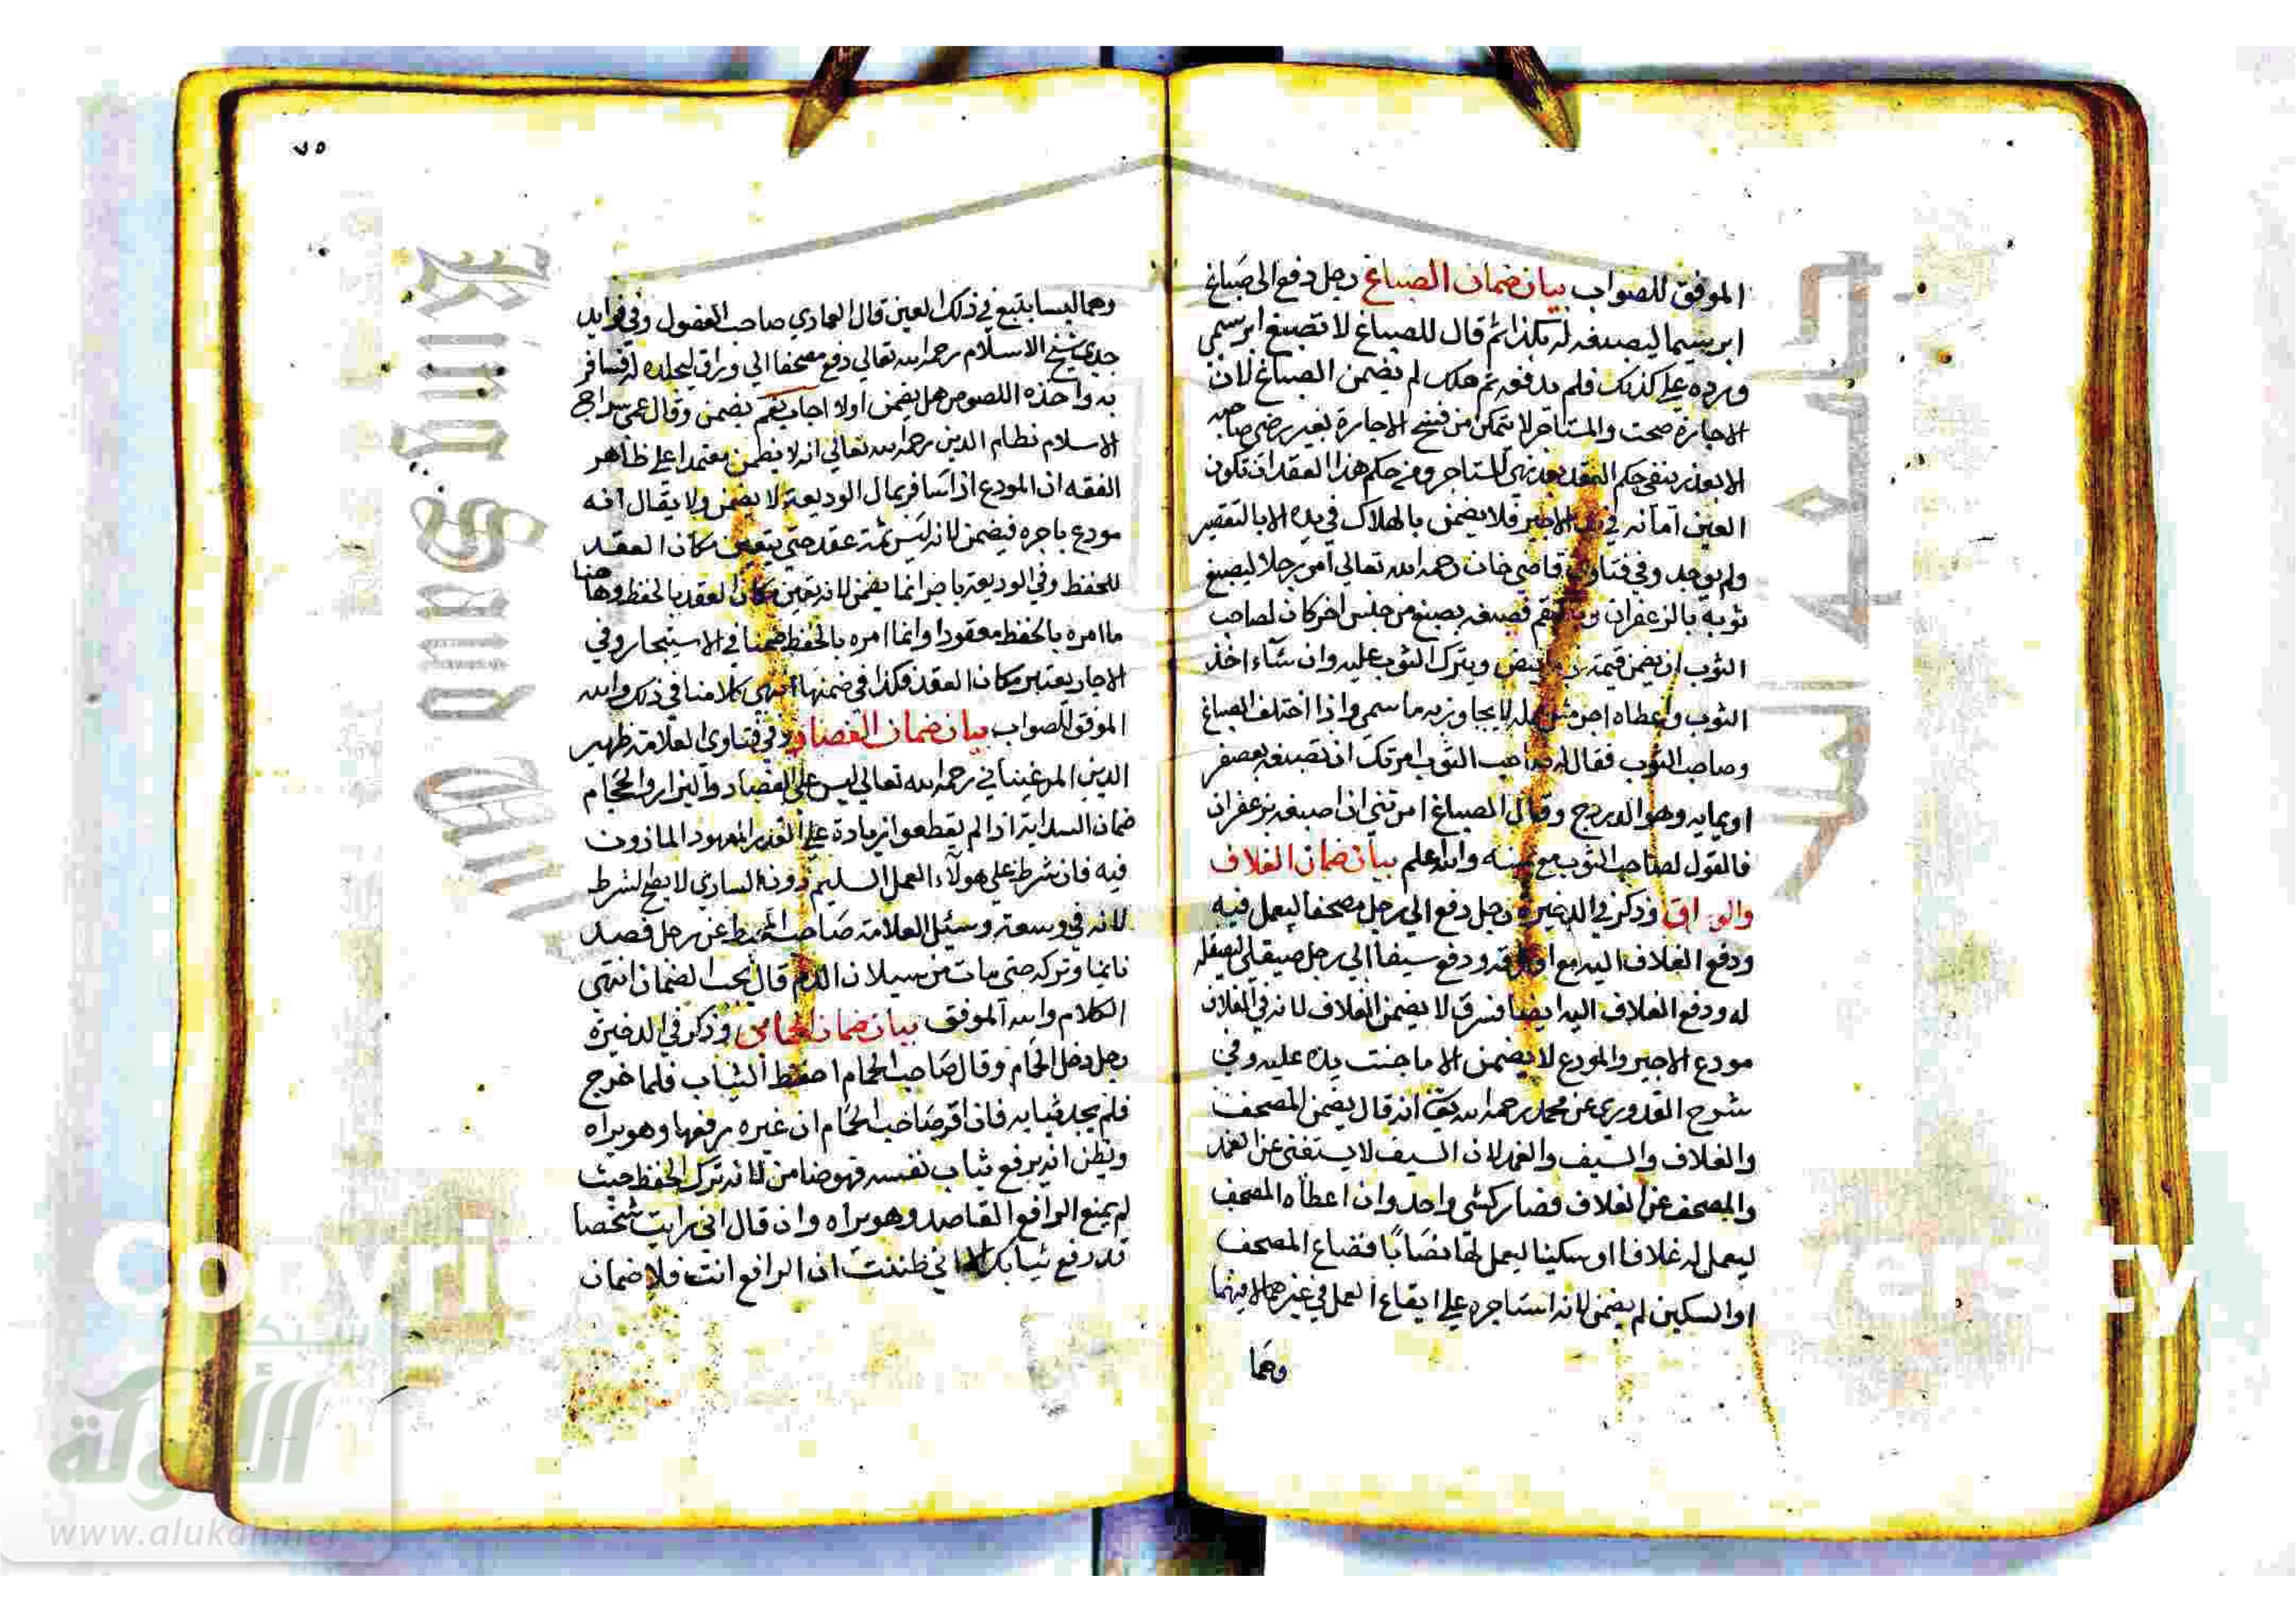 الموفق للصواب بيان ضمان الصباغ رجل دفع الى صباغ
ابريسما ليصبغه له بكذا ثم قال للصباغ لا تصبغ ابريسمي
ورده علي كذلك فلم يدفعه ثم هلك لم يضمن الصباغ لان
الاجارة صحت والمستاجر لا يتمكن من فسخ الاجارة بغير رضى صاحبه
الا بعذر بنفي حكم العقد بعد نهي المستاجر ومن حكم هذا العقد ان تكون
العين امانه في يد الاجير فلا يضمن بالهلاك في يده الا بالتقصير
ولم يوجد وفي فتاوى قاضي خان رحمه الله تعالى امر رجلا ليصبغ
ثوبه بالزعفران وبالبقم فصبغه بصبغ من جنس اخر كان لصاحب
الثوب ان يضمن قيمة ابيض ويترك الثوب عليه وان شاء اخذ
الثوب واعطاه اجر مثل عمله لا يجاوز به ما سمي واذا اختلف الصباغ
وصاحب الثوب فقال له صاحب الثوب امرتك ان تصبغه بعصفر
وقال الصباغ امرتني ان اصبغه بزعفران
فالقول لصاحب الثوب مع يمينه والله اعلم بيان ضمان الغلاف
والوراق وذكر في الذخيرة رجل دفع الى رجل مصحفا ليعمل فيه
ودفع الغلاف اليه مع ودفع سيفا الى رجل صيقلي ليصقله
له ودفع الغلاف اليه ايضا فسرق لا يضمن الغلاف لانه في الغلاف
مودع الاجير والمودع لا يضمن الا ما جنت يده عليه وفي
شرح القدوري عن محمد رحمه الله انه قال يضمن المصحف
والغلاف والسيف والغمد لان السيف لا يستغني عن الغمد
والمصحف عن الغلاف فصار كشي واحد وان اعطاه المصحف
ليعمل له غلافا او سكينا ليعمل لها نصابا فضاع المصحف
او السكين لم يضمن لانه استاجره على ايقاع العمل في غيرهما لا فيهما
وهما
٧٥
وهما ليسا بتبع في ذلك العين قال العمادي صاحب الفصول وفي فوايد
جدي شيخ الاسلام رحمه الله تعالى دفع مصحفا الى وراق ليجلده له فسافر
به واخذه اللصوص هل يضمن اولا اجاب نعم يضمن وقال عمي سراج
الاسلام نظام الدين رحمه الله تعالى انه لا يضمن معتمدا على ظاهر
الفقه ان المودع اذا سافر بمال الوديعة لا يضمن ولا يقال انه
مودع باجره فيضمن لانه ليس ثمة عقد حتى يتعين مكان العقد
للحفظ وفي الوديعة باجر انما يضمن لانه تعين مكان العقد بالحفظ وههنا
ما امره بالحفظ مقصودا وانما امره بالحفظ ضمنا في الاستيجار وفي
الاجارة يعتبر مكان العقد فكذا في ضمنها انتهى كلامنا في ذلك والله
الموفق للصواب بيان ضمان الفصاد وفي فتاوى العلامة ظهير
الدين المرغيناني رحمه الله تعالى ليس على الفصاد والبزاز والحجام
ضمان السراية اذا لم يقطعوا زيادة على القدر المعهود الماذون
فيه فان شرط على هولاء العمل السليم دون الساري لا يصح الشرط
لانه في وسعه وسئل العلامة صاحب المحيط عن رجل فصد
نايما وتركه حتى مات من سيلان الدم قال يجب الضمان انتهى
الكلام والله الموفق بيان ضمان الحمامي وذكر في الذخيرة
رجل دخل الحمام وقال صاحب الحمام احفظ الثياب فلما خرج
فلم يجد ثيابه فان اقر صاحب الحمام ان غيره يرفعها وهو يراه
ويظن انه يرفع ثياب نفسه فهو ضامن لانه ترك الحفظ حيث
لم يمنع الرافع القاصد وهو يراه وان قال اني رايت شخصا
قد رفع ثيابك الا اني ظننت ان الرافع انت فلا ضمان
شبكة
الألوكة
www.alukah.net